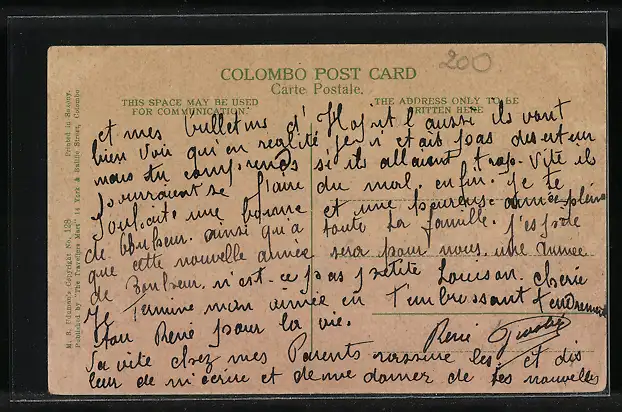 200
COLOMBO POST CARD
Carte Postale.
THIS SPACE MAY BE USED
FOR COMMUNICATION.
THE ADDRESS ONLY TO BE
WRITTEN HERE
et mes bulletins d'Hopital aussi ils vont
bien voir qu'en realité je n'etais pas deserteur
mais tu comprends si ils allaient trop vite ils
pourraient se faire du mal. enfin. Je te
souhaite une bonne et une heureuse année pleine
de bonheur. ainsi qu'a toute ta famille. j'espère
que cette nouvelle année sera pour nous. une année
de Bonheur. n'est-ce pas petite Louison. cherie
Je termine mon aimée en t'embrassant tendrement
ton René pour la vie.
René
Va vite chez mes Parents rassure les et dis
leur de m'ecrire et de me donner de tes nouvelles
M. B. Copyright No. 128 Printed in Saxony.
Published by "The Travellers Mart" 14 York & Baillie Street, Colombo